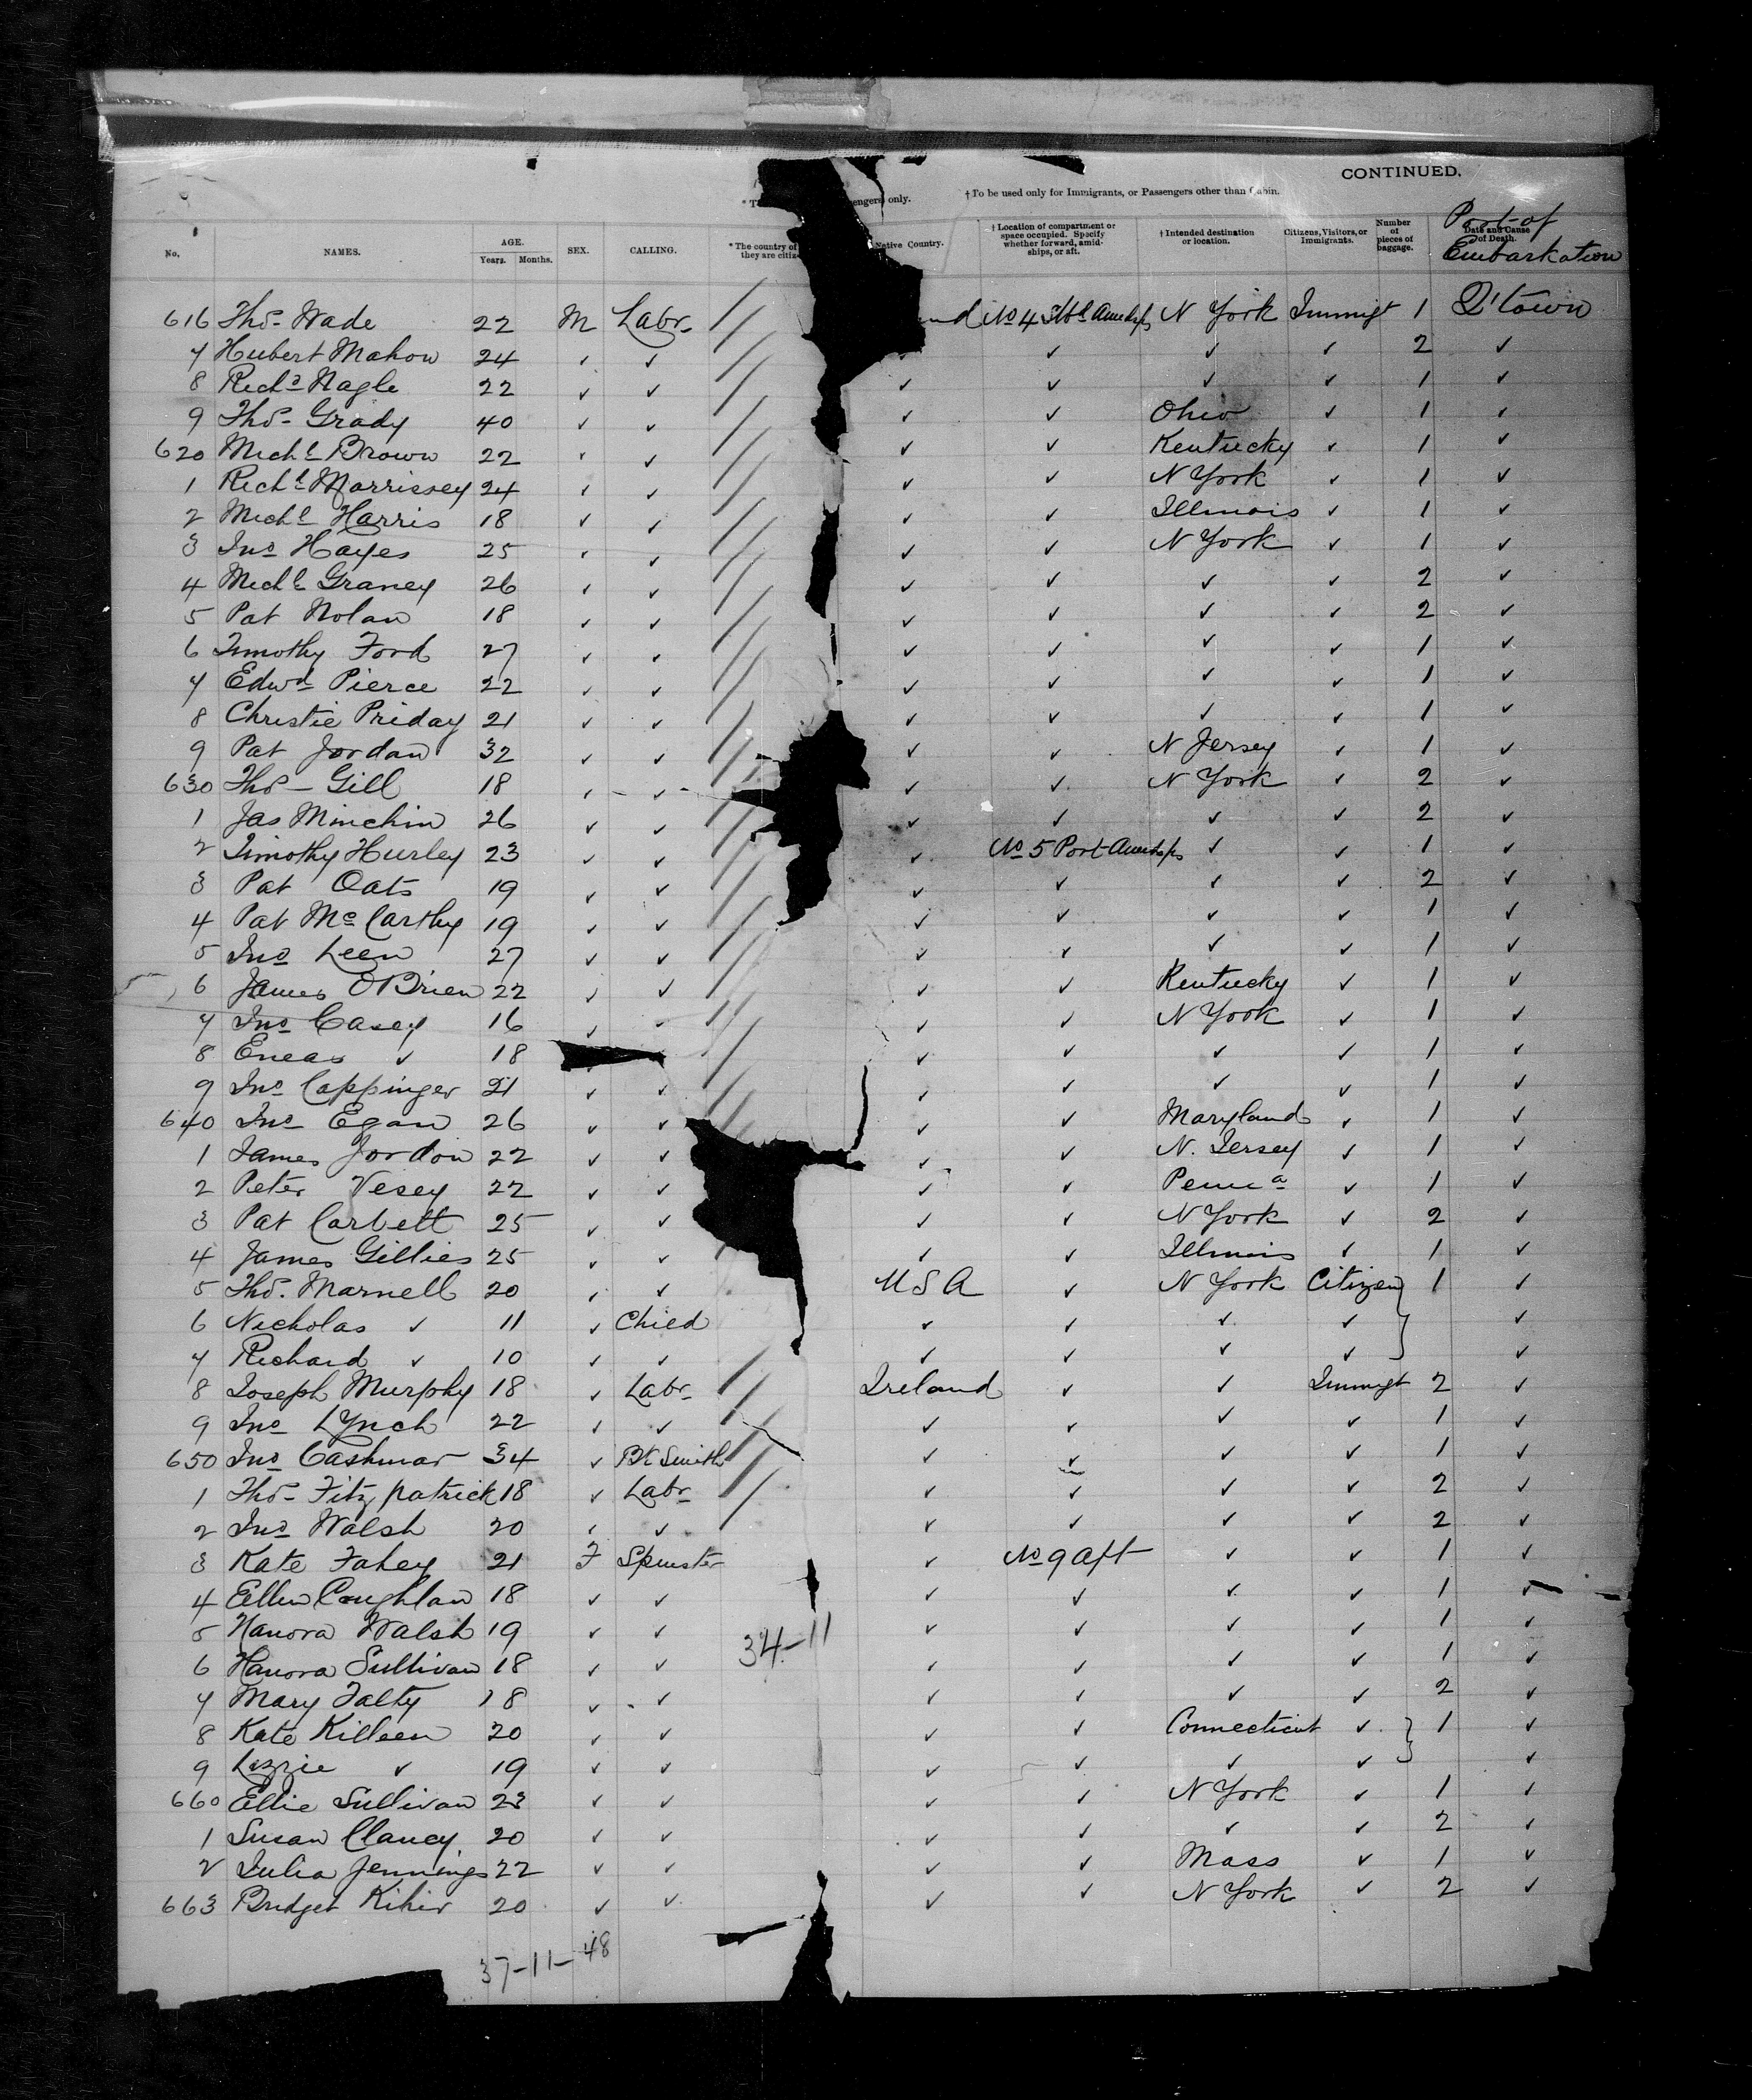 CONTINUED.
engers only. † To be used only for Immigrants, or Passengers other than Cabin.
No. NAMES. AGE. Years. Months. SEX. CALLING. * The country of they are citiz Native Country. † Location of compartment or space occupied. Specify whether forward, amid-ships, or aft. † Intended destination or location. Citizens, Visitors, or Immigrants. Number of pieces of baggage. Date and Cause of Death. Port of Embarkation
616 Thos Wade 22 M Labr nd No 4 N York Immigt 1 Q'town
7 Hubert Mahon 24 ✓ ✓ ✓ ✓ ✓ ✓ 2 ✓
8 Richd Nagle 22 ✓ ✓ ✓ ✓ ✓ ✓ 1 ✓
9 Thos Grady 40 ✓ ✓ ✓ ✓ Ohio ✓ 1 ✓
620 Michl Brown 22 ✓ ✓ ✓ ✓ Kentucky ✓ 1 ✓
1 Richd Morrissey 24 ✓ ✓ ✓ ✓ N York ✓ 1 ✓
2 Michl Harris 18 ✓ ✓ ✓ ✓ Illinois ✓ 1 ✓
3 Jno Hayes 25 ✓ ✓ ✓ ✓ N York ✓ 1 ✓
4 Michl Graney 26 ✓ ✓ ✓ ✓ ✓ ✓ 2 ✓
5 Pat Nolan 18 ✓ ✓ ✓ ✓ ✓ ✓ 2 ✓
6 Timothy Ford 27 ✓ ✓ ✓ ✓ ✓ ✓ 1 ✓
7 Edwd Pierce 22 ✓ ✓ ✓ ✓ ✓ ✓ 1 ✓
8 Christie Priday 21 ✓ ✓ ✓ ✓ ✓ ✓ 1 ✓
9 Pat Jordan 32 ✓ ✓ ✓ ✓ N Jersey ✓ 1 ✓
630 Thos Gill 18 ✓ ✓ ✓ ✓ N York ✓ 2 ✓
1 Jas Minchin 26 ✓ ✓ ✓ ✓ ✓ ✓ 2 ✓
2 Timothy Hurley 23 ✓ ✓ ✓ No 5 Port ✓ ✓ 1 ✓
3 Pat Oats 19 ✓ ✓ ✓ ✓ ✓ ✓ 2 ✓
4 Pat McCarthy 19 ✓ ✓ ✓ ✓ ✓ ✓ 1 ✓
5 Jno Leen 27 ✓ ✓ ✓ ✓ ✓ ✓ 1 ✓
6 James O'Brien 22 ✓ ✓ ✓ ✓ Kentucky ✓ 1 ✓
7 Jno Casey 16 ✓ ✓ ✓ ✓ N York ✓ 1 ✓
8 Eneas ✓ 18 ✓ ✓ ✓ ✓ 1 ✓
9 Jno Cappinger 21 ✓ ✓ ✓ ✓ ✓ ✓ 1 ✓
640 Jno Egan 26 ✓ ✓ ✓ ✓ Maryland ✓ 1 ✓
1 James Jordon 22 ✓ ✓ ✓ ✓ N. Jersey ✓ 1 ✓
2 Peter Vesey 22 ✓ ✓ ✓ ✓ Penna ✓ 1 ✓
3 Pat Corbett 25 ✓ ✓ ✓ ✓ N York ✓ 2 ✓
4 James Gillies 25 ✓ ✓ ✓ ✓ Illinois ✓ 1 ✓
5 Thos. Marnell 20 ✓ ✓ U S A ✓ N York Citizen 1 ✓
6 Nicholas ✓ 11 ✓ Child ✓ ✓ ✓ ✓ ✓
7 Richard ✓ 10 ✓ ✓ ✓ ✓ ✓ ✓ ✓
8 Joseph Murphy 18 ✓ Labr Ireland ✓ ✓ Immigt 2 ✓
9 Jno Lynch 22 ✓ ✓ ✓ ✓ ✓ ✓ 1 ✓
650 Jno Cashmar 34 ✓ Bk Smith ✓ ✓ ✓ ✓ 1 ✓
1 Thos Fitzpatrick 18 ✓ Labr ✓ ✓ ✓ ✓ 2 ✓
2 Jno Walsh 20 ✓ ✓ ✓ ✓ ✓ ✓ 2 ✓
3 Kate Fahey 21 F Spinster ✓ No 9 aft ✓ ✓ 1 ✓
4 Ellen Coughlan 18 ✓ ✓ ✓ ✓ ✓ ✓ 1 ✓
5 Hanora Walsh 19 ✓ ✓ 34-11 ✓ ✓ ✓ ✓ 1 ✓
6 Hanora Sullivan 18 ✓ ✓ ✓ ✓ ✓ ✓ 1 ✓
7 Mary Falty 18 ✓ ✓ ✓ ✓ ✓ ✓ 2 ✓
8 Kate Killeen 20 ✓ ✓ ✓ ✓ Connecticut ✓ 1 ✓
9 Lizzie ✓ 19 ✓ ✓ ✓ ✓ ✓ ✓ ✓
660 Ellie Sullivan 23 ✓ ✓ ✓ ✓ N York ✓ 1 ✓
1 Susan Clancy 20 ✓ ✓ ✓ ✓ ✓ ✓ 2 ✓
2 Julia Jennings 22 ✓ ✓ ✓ ✓ Mass ✓ 1 ✓
663 Bridget 20 ✓ ✓ ✓ ✓ N York ✓ 2 ✓
37-11-48